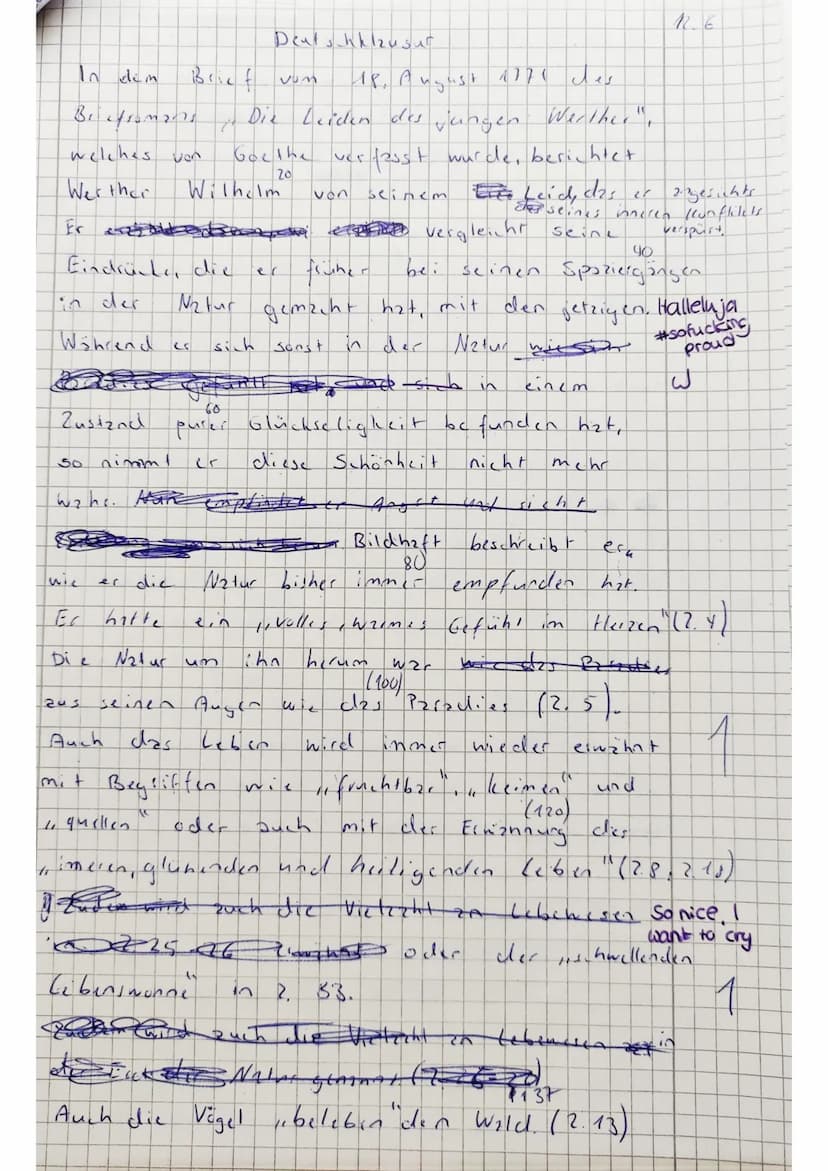 12.6
Deutschklausur
In dem Brief vom 18. August 1771 des
Briefromans „Die Leiden des jungen Werther",
welches von Goethe verfasst wurde, berichtet
20
Werther Wilhelm von seinem Leid, das er angesichts
seines inneren Konflikts
Er vergleicht seine verspürt.
40
Eindrücke, die er früher bei seinen Spaziergängen
in der Natur gemacht hat, mit den jetzigen. Halleluja
#sofucking
proud
Während er sich sonst in der Natur
in einem
60
Zustand purer Glückseligkeit befunden hat,
so nimmt er diese Schönheit nicht mehr
wahr. Nun empfindet er Angst und sieht
Bildhaft beschreibt er,
80
wie er die Natur bisher immer empfunden hat.
Er hatte ein „volles, warmes Gefühl im Herzen" (Z. 4)
Die Natur um ihn herum war wie das Paradies
(100)
aus seinen Augen wie das Paradies (Z. 5).
Auch das Leben wird immer wieder erwähnt
1
mit Begriffen wie „fruchtbar", „keimen" und
(120)
„quellen" oder auch mit der Ernennung des
„inneren, glühenden und heiligenden Leben" (Z.8, Z.18)
Zudem wird auch die Vielzahl an Lebewesen So nice, I
want to cry
oder der „schwellenden
Lebenswonne" in Z. 33.
1
Zudem wird auch die Vielzahl an Lebewesen in
der Natur genannt
137
Auch die Vögel „beleben" den Wald. (Z. 13)